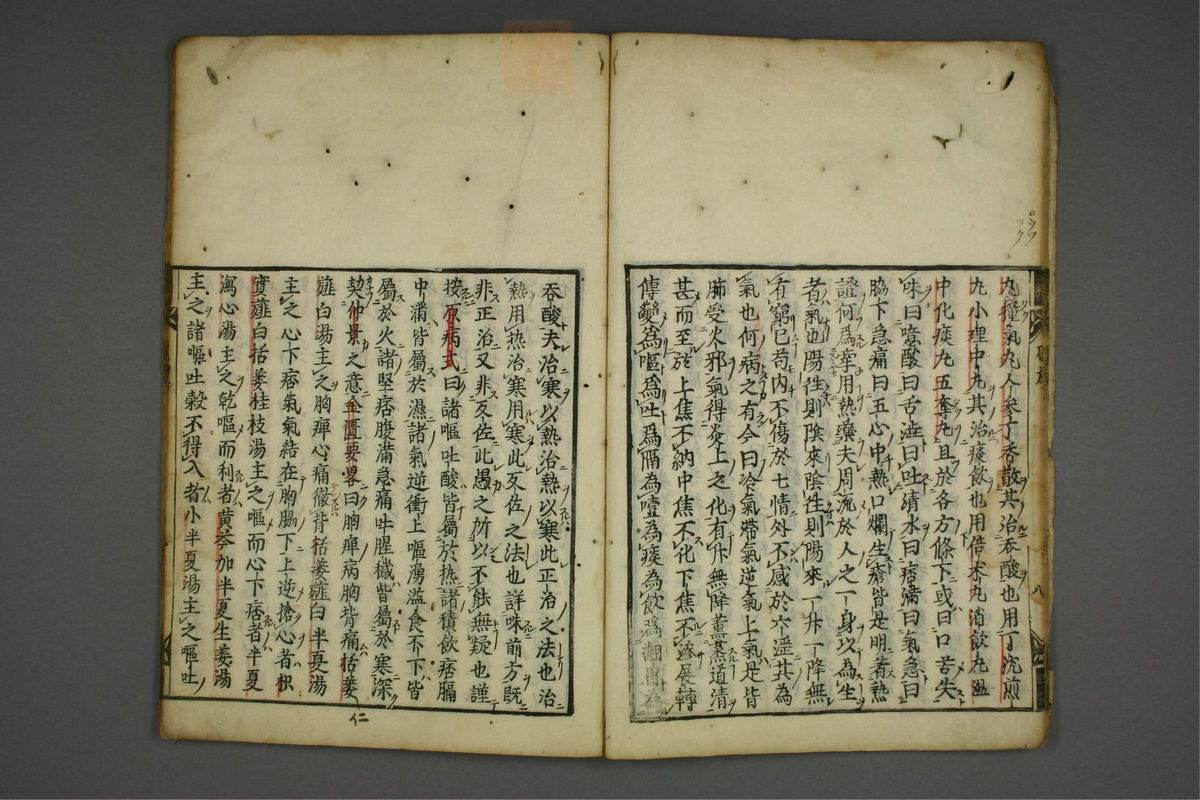 九撞氣丸人參丁香散其治吞酸也用丁沈煎
丸小理中丸其治痰飲也用倍朮丸消飲丸溫
中化痰丸五套丸且於各方條下或曰口苦失
味曰噫酸曰舌澁曰吐清水曰痞滿曰氣急曰
脇下急痛曰五心中熱口爛生瘡皆是明著熱
證何爲率用熱藥夫周流於人之一身以為生
者氣也陽徃則陰來陰徃則陽來一升一降無
有窮已苟內不傷於七情外不感於六淫其為
氣也何病之有今曰冷氣滯氣逆氣上氣是皆
肺受火邪氣得炎上之化有升無降薰蒸道清
甚而至於上焦不納中焦不化下焦不滲展轉
傳變爲嘔爲吐爲膈為噎為痰為飲爲翻胃為
吞酸夫治寒以熱治熱以寒此正治之法也治
熱用熱治寒用寒此反佐之法也詳味前方既
非正治又非反佐此愚之所以不能無疑也謹
按原病式曰諸嘔吐酸皆屬於熱諸積飲痞膈
中滿皆屬於濕諸氣逆衝上嘔湧溢食不下皆
屬於火諸堅痞腹滿急痛吐腥穢皆屬於寒深
契仲景之意金匱要畧曰胸痺病胸背痛括蔞
薤白湯主之胸痺心痛徹背括蔞薤白半夏湯
主之心下痞氣氣結在胸脇下上逆搶心者枳
實薤白括蔞桂枝湯主之嘔而心下痞者半夏
瀉心湯主之乾嘔而利者黄芩加半夏生姜湯
主之諸嘔吐穀不得入者小半夏湯主之嘔吐
仁